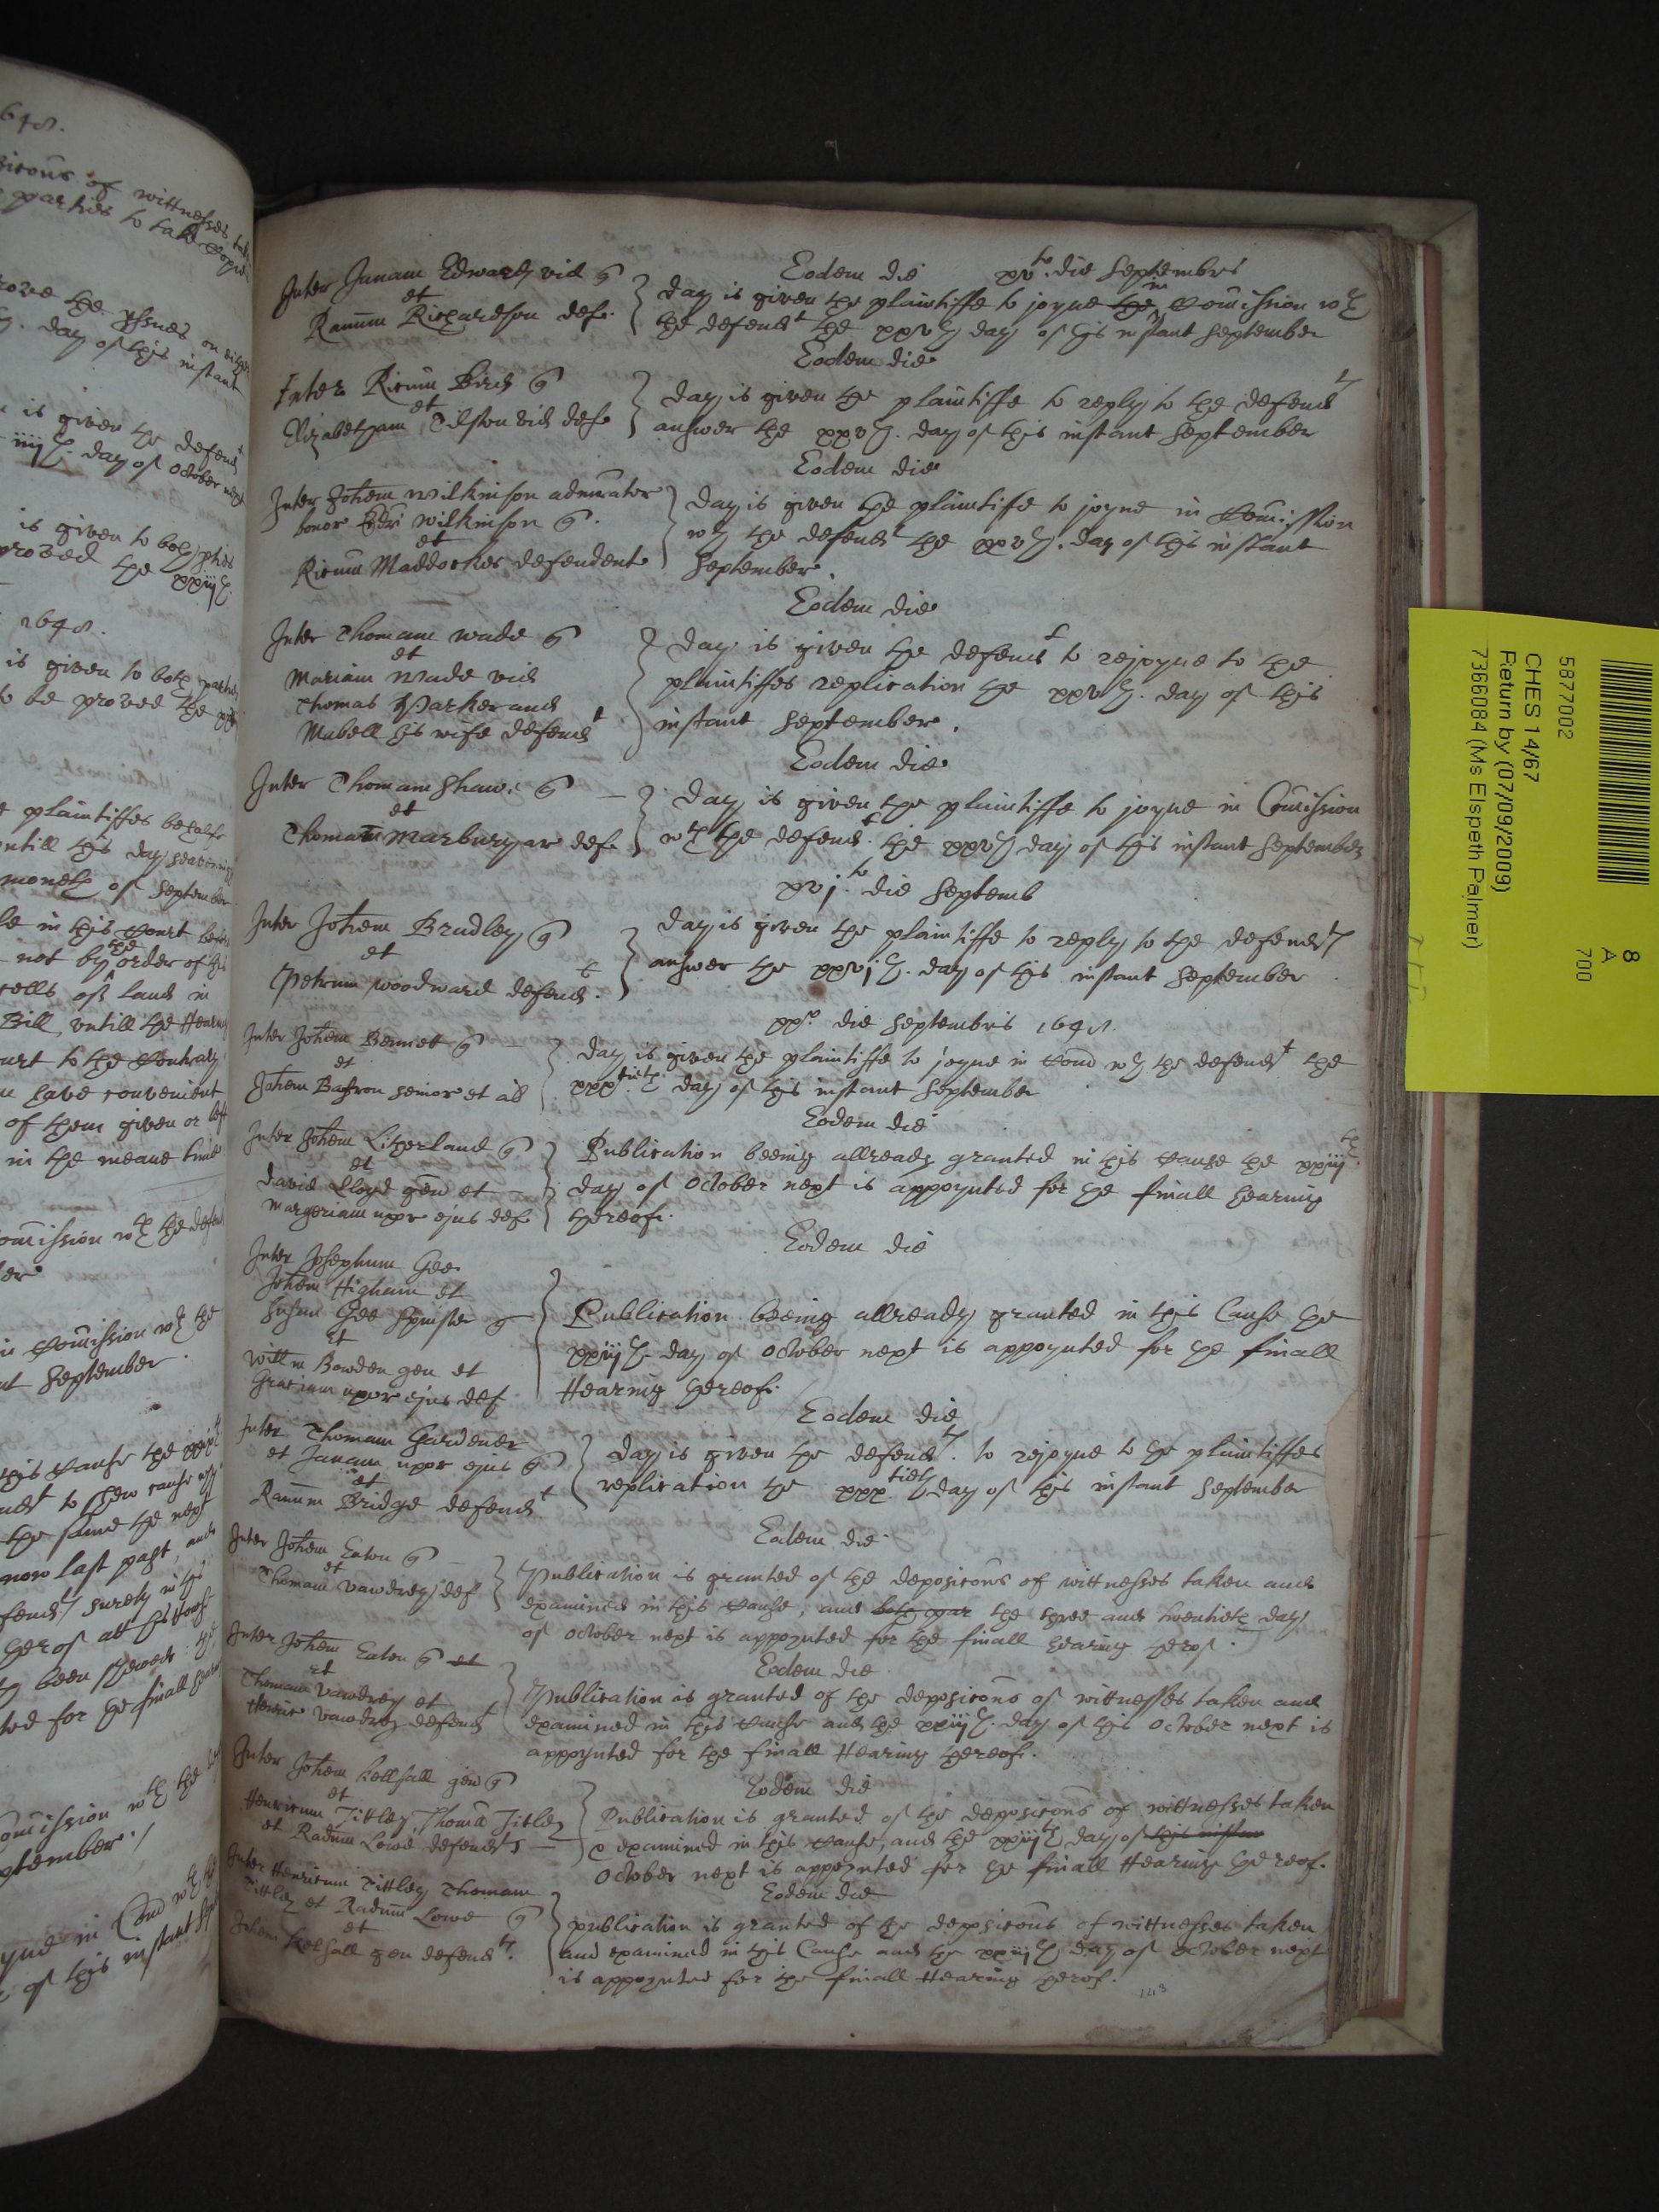 648.
of wittnesses
parties to take
prove the yssues on
day of this instant
is given the defendt
iiijth. day of October next
is given to both pties
proved the xxiijth.
1648.
is given to both parties
to be proved the
plaintiffes behalfe
untill this day
moneth of September
in this Court
not by the order of
of land in
Bill, untill the Hearing
Court to the Contrary
have convenient
of them given or left
in the meane time
Comission wth the defend
in Comission wth the
September.
this Cause the
to shew cause
the same the next
now last past, and
surety in
herof att
been shewed
for the finall
Comission wth the
September./
in Com wth
of this instant
Eodem die xvto. die Septembris
Inter Janam Edwards vid q
et
Ranum Richardson def.
day is given the plaintiffe to joyne the in Comission wth
the defendt the xxvth day of this instant September
Eodem die
Inter Ricum Bird q
et
Elizabetham Tilston vid def
day is given the plaintiffe to reply to the defendts
answer the xxvth. day of this instant September
Eodem die
Inter Johem Wilkinson administrator
bonor Edri Wilkinson q.
et
Ricum Maddockes defendent
day is given the plaintife to joyne in Comission
wth the defendt the xxvth. day of this instant
September.
Eodem die
Inter Thomam Wade q
et
Mariam Wade vid
Thomas Parker and
Mabell his wife defendt
day is given the defendt to rejoyne to the
plaintiffes replication the xxvth. day of this
instant September.
Eodem die
Inter Thomam Shawe q
et
Thomam Marbury ar def.
day is given the plaintiffe to joyne in Comission
wth the defendt. the xxvth day of this instant September
xvjto. die Septemb
Inter Johem Bradley q
et
Petrum Woodward defendt.
day is given the plaintiffe to reply to the defendts
answer the xxvjth. day of this instant September
xxo. die Septembris 1648.
Inter Johem Bennet q
et
Johem senior et al
day is given the plaintiffe to joyne in Com wth the defendt the
xxxtieth. day of this instant September
Eodem die
Inter Johem Litherland q
et
David Lloyd gen et
Margeriam uxor ejus def
Publication beeing allready granted in this Cause the xxiijth.
day of October next is appoynted for the finall hearing
thereof.
Eodem die
Inter Josephum Gee
Johem Higham et
Susan Gee Spinster q
et
Willm Bowden gen et
Graciam uxor ejus def
Publication beeing allready granted in this Cause the
xxiijth day of October next is appoynted for the finall
Hearing thereof.
Eodem die
Inter Thomam Gardener
et Janam uxor ejus q
et
Ranum Bridge defendt
day is given the defendts. to rejoyne to the plaintiffes
replication the xxx.tieth day of this instant September
Eodem die
Inter Johem Eaton q
et
Thomam Vawdrey def
Publication is granted of the deposicons of wittnesses taken and
examined in this Cause, and both par the three and twentieth day
of October next is appoynted for the finall hearing herof.
Eodem die
Inter Johem Eaton q et
et
Thomam Vawdrey et
Henric Vawdrey defendt
Publication is granted of the deposicons of wittnesses taken and
examined in this Cause and the xxiijth. day of this October next is
appoynted for the finall Hearing thereof.
Eodem die
Inter Johem Kellsall gen q
et
Henricum Tittley, Thoma Titley
et Radum Lowe defendts
Publication is granted of the deposicons of wittnesses taken
& examined in this Cause, and the xxiijth day of this instant
October next is appoynted for the finall Hearing thereof.
Eodem die
Inter Henricum Tittley Thomam
Tittley et Radum Lowe q
et
Johem Kelsall gen defendts.
publication is granted of the deposicons of wittnesses taken
and examined in this Cause and the xxiijth day of October next
is appoynted for the finall Hearing herof.
143
8
A
700
5877002
CHES 14/67
Return by (07/09/2009)
7366084 (Ms Elspeth Palmer)